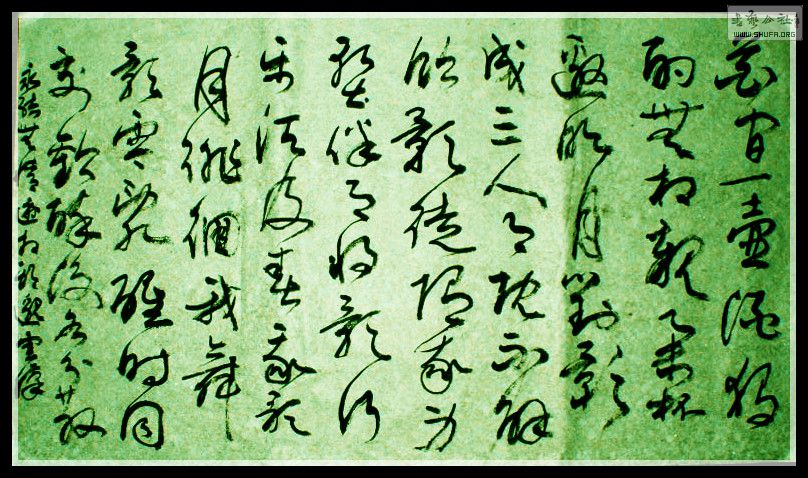 花間一壺酒獨
酌無相親舉杯
邀明月對影
成三人月既不解
飲影徒隨我身
暫伴月將影行
樂須及春我歌
月徘徊我舞
影零亂醒時同
交歡醉後各分散
永結無情遊相期邈雲漢
書藝公社
WWW.SHUFA.ORG